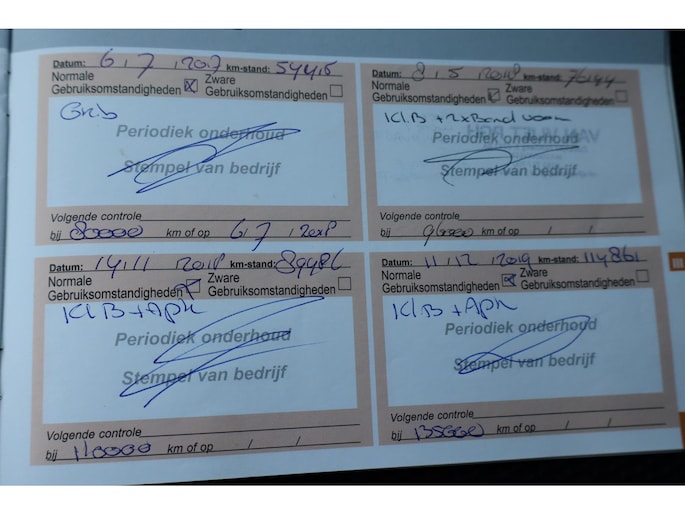 Datum: 6 / 7 / 2017 km-stand: 54415
Normale Gebruiksomstandigheden ☒ Zware Gebruiksomstandigheden ☐
Grb
Periodiek onderhoud
Stempel van bedrijf
Volgende controle
bij 80000 km of op 6 / 7 / 2018
Datum: 8 / 5 2018 km-stand: 76144
Normale Gebruiksomstandigheden ☑ Zware Gebruiksomstandigheden ☐
KLB + 2x Band voor
Periodiek onderhoud
Stempel van bedrijf
Volgende controle
bij 96000 km of op / /
Datum: 14 / 11 2018 km-stand: 89486
Normale Gebruiksomstandigheden ☑ Zware Gebruiksomstandigheden ☐
KLB + Apk
Periodiek onderhoud
Stempel van bedrijf
Volgende controle
bij 110000 km of op / /
Datum: 11 / 12 2019 km-stand: 114861
Normale Gebruiksomstandigheden ☒ Zware Gebruiksomstandigheden ☐
KLB + Apk
Periodiek onderhoud
Stempel van bedrijf
Volgende controle
bij 135000 km of op / /